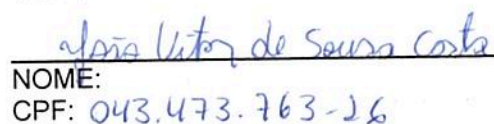 João Vitor de Sousa Costa
NOME:
CPF: 043.473.763-26